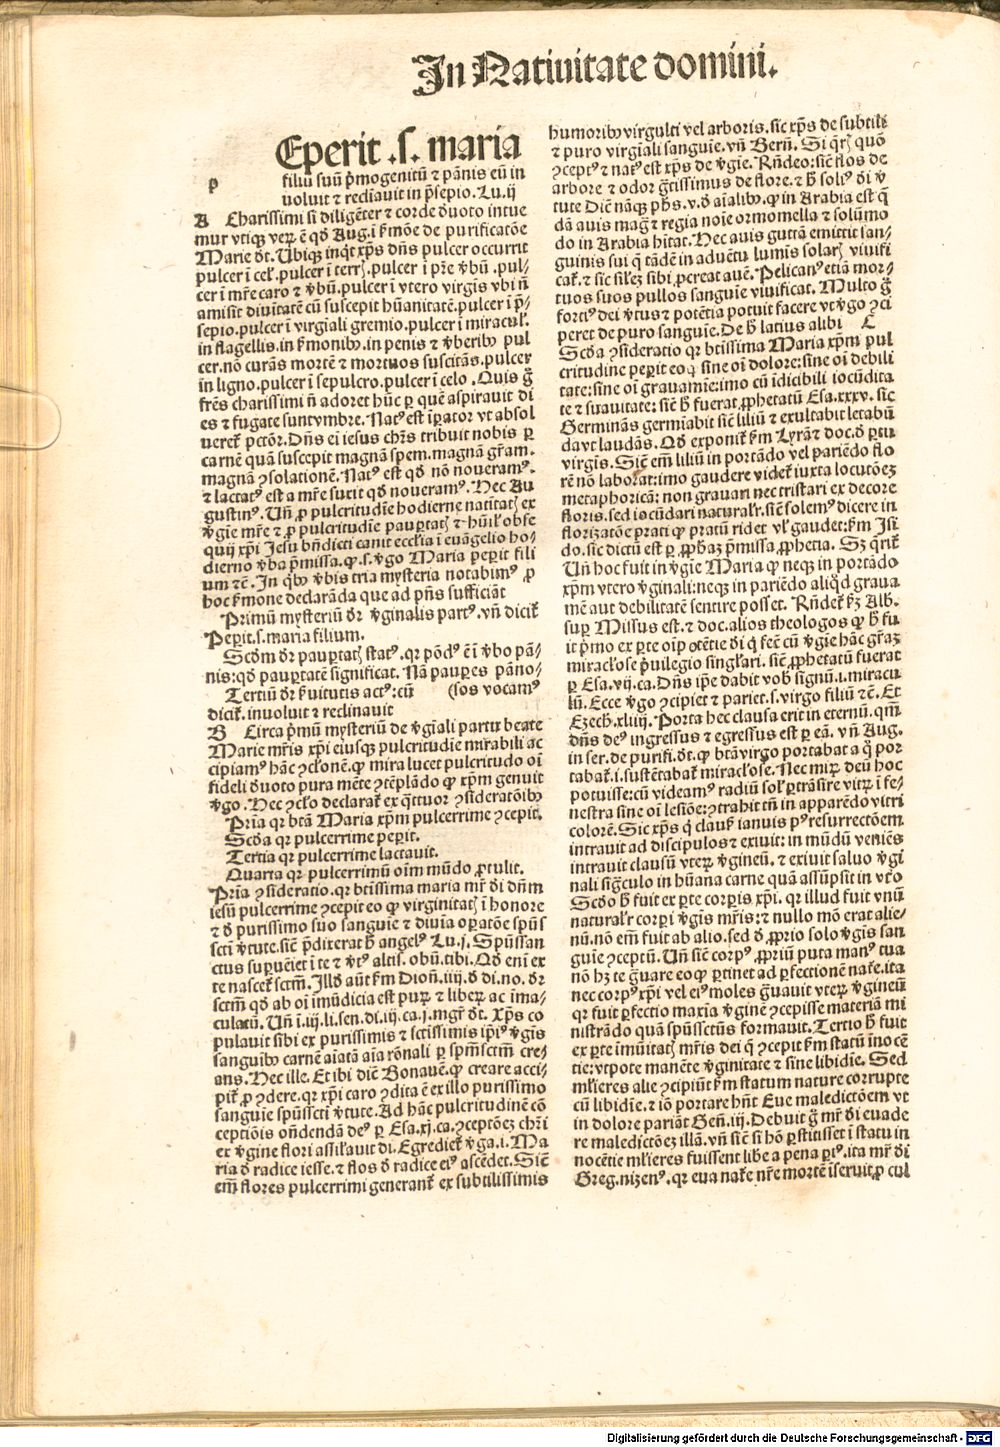 In Natiuitate domini.
Eperit .s. maria
p
filiū suū p̄mogenitū ⁊ pānis eū in
uoluit ⁊ recliauit in p̄sepio. Lu. ij
A Charissimi si diligēter ⁊ corde ꝺuoto intue
mur vtiqꝫ veꝝ ē qꝺ Aug. i ẜmōe de purificatōe
Marie ꝺt. Ubiqꝫ inqt xp̄s dn̄s pulcer occurrit
pulcer i cel'. pulcer ī terrꝭ. pulcer i pr̄e v̄bū .pul-
cer i mr̄e caro ⁊ v̄bū. pulcer i vtero virgis vbi n̄
amisit diuitatē cū suscepit hūanitatē. pulcer i p̄-
sepio. pulcer ī virgiali gremio. pulcer ī miracul'.
in flagellis. in ẜmonibꝫ. in penis ⁊ v̄beribꝫ pul
cer. nō curās mortē ⁊ mortuos suscitās. pulcer
in ligno. pulcer i sepulcro. pulcer i celo. Quis g̊
fr̄es charissimi n̄ adoret hūc ꝑ quē aspirauit di
es ⁊ fugate sunt vmbre. Natꝰ est īꝑator vt absol
ueret pctōr. Dn̄s ei iesus chr̄s tribuit nobis ꝑ
carnē quā suscepit magnā spem. magnā gr̄am.
magnā ꝯsolationē. Natꝰ est qꝺ nō noueramꝰ.
⁊ lactatꝰ est a mr̄e suxit qꝺ noueramꝰ. Hec Au
gustinꝰ. Un̄ ꝓ pulcritudīe hodierne natitatꝭ ex
v̄gie mr̄e ⁊ ꝓ pulcritudīe pauꝑtatꝭ ⁊ hūil' obse
quij xp̄i Jesu bn̄dicti canit eccl'ia i euāgelio ho-
dierno v̄ba p̄missa. ꝙ .s. v̄go Maria peperit fili
um ⁊c̄. In qbꝫ v̄bis tria mysteria notabimꝰ ꝓ
hoc ẜmone declarāda que ad pn̄s sufficiāt
Primū mysteriū ꝺr v̄ginalis partꝰ. vn̄ dicit̉
Peꝑit. s. maria filium.
Scꝺm ꝺr pauꝑtatꝭ statꝰ. qꝛ pōdꝰ ē ī v̄bo pān-
nis: qꝺ pauꝑtatē significat. Nā pauꝑes pāno-
Tertiū ꝺr ẜuitutis actꝰ: cū (sos vocamꝰ
dicit̉. inuoluit ⁊ reclinauit
B Circa p̄mū mysteriū de v̄giali partu beate
Marie mr̄is xp̄i eiusqꝫ pulcritudīe mirabili ac
cipiamꝰ hāc ꝯclōnē. ꝙ mira lucet pulcritudo oī
fideli ꝺuoto pura mēte ꝯtēplādo ꝙ xp̄m genuit
v̄go. Hec ꝯclo declarat̉ ex q̄ttuor ꝯsideratōibꝫ
Pria qꝛ btā Maria xp̄m pulcerrime ꝯcepit.
Scꝺa qꝛ pulcerrime peꝑit.
Tertia qꝛ pulcerrime lactauit.
Quarta qꝛ pulcerrimū oīm mūdo ꝓtulit.
Pria ꝯsideratio. qꝛ btissima maria mr̄ ꝺi dn̄m
iesū pulcerrime ꝯcepit eo ꝙ virginitatꝭ ī honore
⁊ ꝺ purissimo suo sanguie ⁊ diuia oꝑatōe spūs
scti v̄tute. sic̄ p̄dixerat ꝫ angelꝰ Lu. j. Spūssan
ctus suꝑuēiet ī te ⁊ v̄tꝰ altis. obū. tibi. Qꝺ eni ex
te nascet̉ sctm̄. Illꝺ aūt ẜm Dion̄. iiij. ꝺ di. no. ꝺr
sctm̄ qꝺ ab oī imūdicia est puꝝ ⁊ libeꝝ ac īma-
culatū. Un̄ ī .iij. li. sen. di. iij. ca. j. mgr̄ ꝺt. Xp̄s co
pulauit sibi ex purissimis ⁊ sctissimis ip̄iꝰ v̄gīs
sanguibꝫ carnē aiatā aīa rōnali ꝑ spm̄sctm̄ cre-
ans. Hec ille. Et ibi diē Bonauē. ꝙ creare acci-
pit̉ ꝓ ꝯdere. qꝛ xp̄i caro ꝯdita ē ex illo purissimo
sanguie spūsscti v̄tute. Ad hāc pulcritudinē cō
ceptiōis on̄dendā deꝰ ꝑ Esa. xj. ca. ꝯceptōeꝫ chr̄i
ex v̄gine flori assil'auit di. Egrediet̉ v̄ga. i. Ma
ria ꝺ radice iesse. ⁊ flos ꝺ radice eiꝰ ascēdet. Sic̄
em̄ flores pulcerrimi generant̉ ex subtilissimis
humoribꝫ virgulti vel arboris. sic xp̄s de subtili
⁊ puro virgiali sanguie. vn̄ Bern̄. Si qr̄ꝭ quō
ꝯceptꝰ ⁊ natꝰ est xp̄s de v̄gie. Rn̄deo: sic̄ flos de
arbore ⁊ odor g̊tissimus de flore. ⁊ ꝫ soliꝰ ꝺi v̄
tute Diē nāqꝫ ph̄s. v. ꝺ aīalibꝫ. ꝙ in Arabia est q̄
dā auis mag̊ ⁊ regia noīe ormomella ⁊ solūmo
do in Arabia hītat. Hec auis guttā emittit san-
guinis sui q̄ tādē in aduētu lumīs solarꝭ viuifi
cat̉. ⁊ sic sil'eꝫ sibi ꝓcreat auē. Pelicanꝰ etiā mor-
tuos suos pullos sanguie viuificat. Multo g̊
fortiꝰ dei v̄tus ⁊ potētia potuit facere vt v̄go ꝯci
peret de puro sanguie. De ꝫ latius alibi C
Scꝺa ꝯsideratio qꝛ btissima Maria xp̄m pul
critudine peꝑit eo ꝙ sine oī dolore: sine oī debili
tate: sine oī grauamīe: imo cū īdicibili iocūdita
te ⁊ suauitate: sic̄ ꝫ fuerat ꝓphetatū Esa. xxxv. sic̄
Germinās germīabit sic̄ liliū ⁊ exultabit letabū
da ⁊ laudās. Qꝺ exponit̉ ẜm Lyrā ⁊ doc. ꝺ ꝑtu
virgīs. Sic̄ em̄ liliū in portādo vel pariēdo flo
rē nō laborat: imo gaudere videt̉ iuxta locutōeꝫ
metaphoricā: non grauari nec tristari ex decore
floris. sed iocūdari naturalr̄. sic̄ solemꝰ dicere in
florizatōe prati ꝙ pratū ridet vl' gaudet: ẜm Isi
do. sic dictū est ꝑ ꝓphaꝫ p̄missa ꝓphetia. Sꝫ qr̄it̉
Un̄ hoc fuit in v̄gie Maria ꝙ neqꝫ in portādo
xp̄m vtero v̄ginali: neqꝫ in pariēdo aliqd graua
mē aut debilitatē sentire posset. Rn̄det̉ ẜꝫ Alb.
suꝑ Missus est. ⁊ doc. alios theologos ꝙ ꝫ fu
it p̄mo ex ꝑte oīpotētie ꝺi q̄ fec̄ cū v̄gie hāc gr̄aꝫ
miracl'ose p̄uilegio singl'ari. sic̄ ꝓphetatū fuerat
ꝑ Esa. vij. ca. Dn̄s ip̄e dabit vob̄ signū. i. miracu
lū. Ecce v̄go ꝯcipiet ⁊ pariet. s. virgo filiū ⁊c̄. Et
Ezech. xliiij. Porta hec clausa erit in eternū. qm̄
dn̄s deꝰ ingressus ⁊ egressus est ꝑ eā. vn̄ Aug.
in ser. de purifi. ꝺt. ꝙ btā virgo portabat a q̄ por
tabat̉. i. sustētabat̉ miracl'ose. Nec miꝝ deū hoc
potuisse: cū videamꝰ radiū sol' ꝑtrāsire vitꝝ ī fe-
nestra sine oī lesiōe: ꝯtrahit tn̄ in apparēdo vitri
colorē. Sic xp̄s q̄ clausꝭ ianuis pꝰ resurrectōem
intrauit ad discipulos ⁊ exiuit: in mūdū veniēs
intrauit clausū vteꝝ v̄gineū. ⁊ exiuit saluo v̄gi
nali sig̊culo in hūana carne quā assūpsit in vt̄o
Scꝺo ꝫ fuit ex ꝑte corꝑis xp̄i. qꝛ illud fuit vnū
naturalr̄ corpi v̄gīs mr̄is: ⁊ nullo mō erat alie-
nū. nō em̄ fuit ab alio. sed ꝺ ꝓprio solo v̄gīs san
guie ꝯceptū. Un̄ sic̄ corpꝰ ꝓpriū puta manꝰ tua
nō hꝫ te g̊uare eo ꝙ ꝑtinet ad ꝑfectionē nat̉e. ita
nec corpꝰ xp̄i vel eiꝰ moles g̊uauit vteꝝ v̄gineū
qꝛ fuit ꝑfectio maxīa v̄ginē ꝯcepisse materiā mi
nistrādo quā spūssctūs formauit. Tertio ꝫ fuit
ex ꝑte īmūitatꝭ mr̄is dei q̄ ꝯcepit ẜm statū īnocē
tie: vtpote manēte v̄ginitate ⁊ sine libidīe. Sed
ml'ieres alie ꝯcipiūt ẜm statum nature corrupte
cū libidīe. ⁊ iō portare hn̄t Eue maledictōem vt
in dolore pariāt Gen̄. iij. Debuit g̊ mr̄ ꝺi euade
re maledictōeꝫ illā. vn̄ sic̄ si hō ꝑstitisset ī statu in
nocētie ml'ieres fuissent libe a pena ꝑtꝰ. ita mr̄ ꝺi
Greg. nizenꝰ. qꝛ eua nat̉e nr̄e mortē īseruit. ꝓ cul
Digitalisierung gefördert durch die Deutsche Forschungsgemeinschaft - DFG